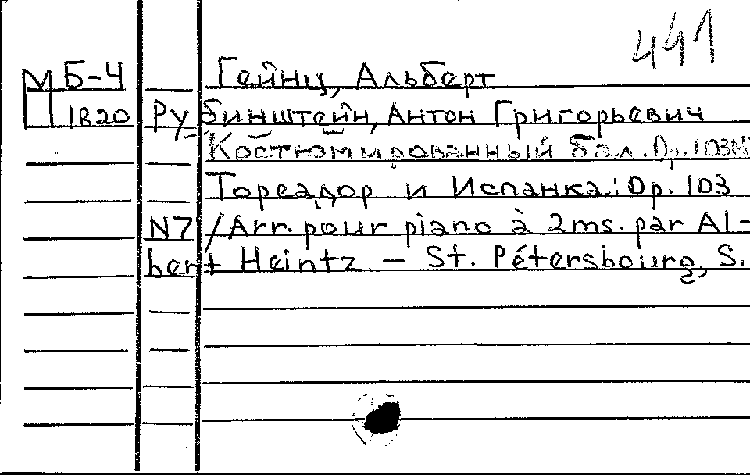 441
М Б-4 Гейнц, Альберт
П 1820 Рубинштейн, Антон Григорьевич
Костюмированный бал. Op. 103 N7
Тореадор и Испанка: Op. 103
N7 /Arr. pour piano à 2ms. par Al-
bert Heintz — St. Pétersbourg, S.